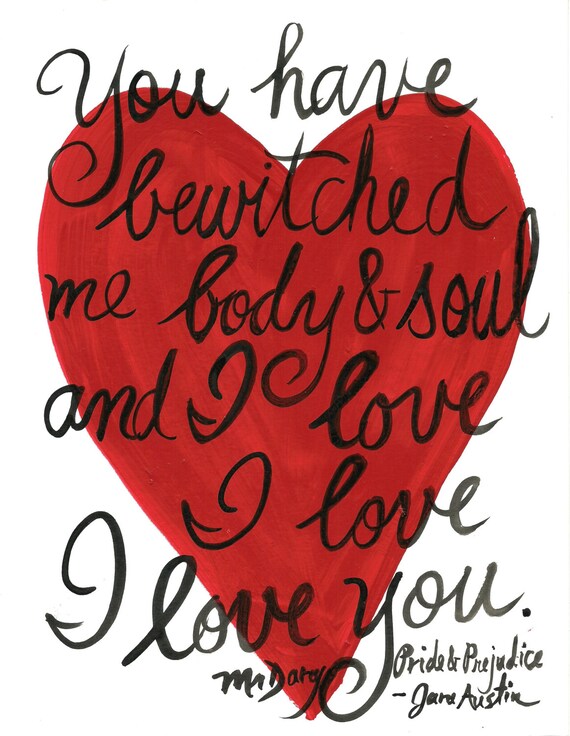 You have
bewitched
me body & soul
and I love
I love
I love you.
Mr Darcy
Pride & Prejudice
- Jane Austin